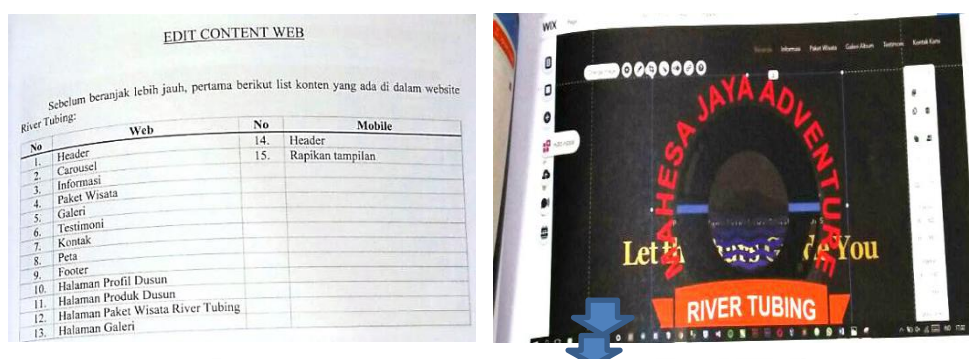 EDIT CONTENT WEB
Sebelum beranjak lebih jauh, pertama berikut list konten yang ada di dalam website
River Tubing:
No Web No Mobile
1. Header 14. Header
2. Carousel 15. Rapikan tampilan
3. Informasi
4. Paket Wisata
5. Galeri
6. Testimoni
7. Kontak
8. Peta
9. Footer
10. Halaman Profil Dusun
11. Halaman Produk Dusun
12. Halaman Paket Wisata River Tubing
13. Halaman Galeri
WIX
Beranda Informasi Paket Wisata Galeri Album Testimoni Kontak Kami
Change Image
MAHESA JAYA ADVENTURE
Let You
RIVER TUBING